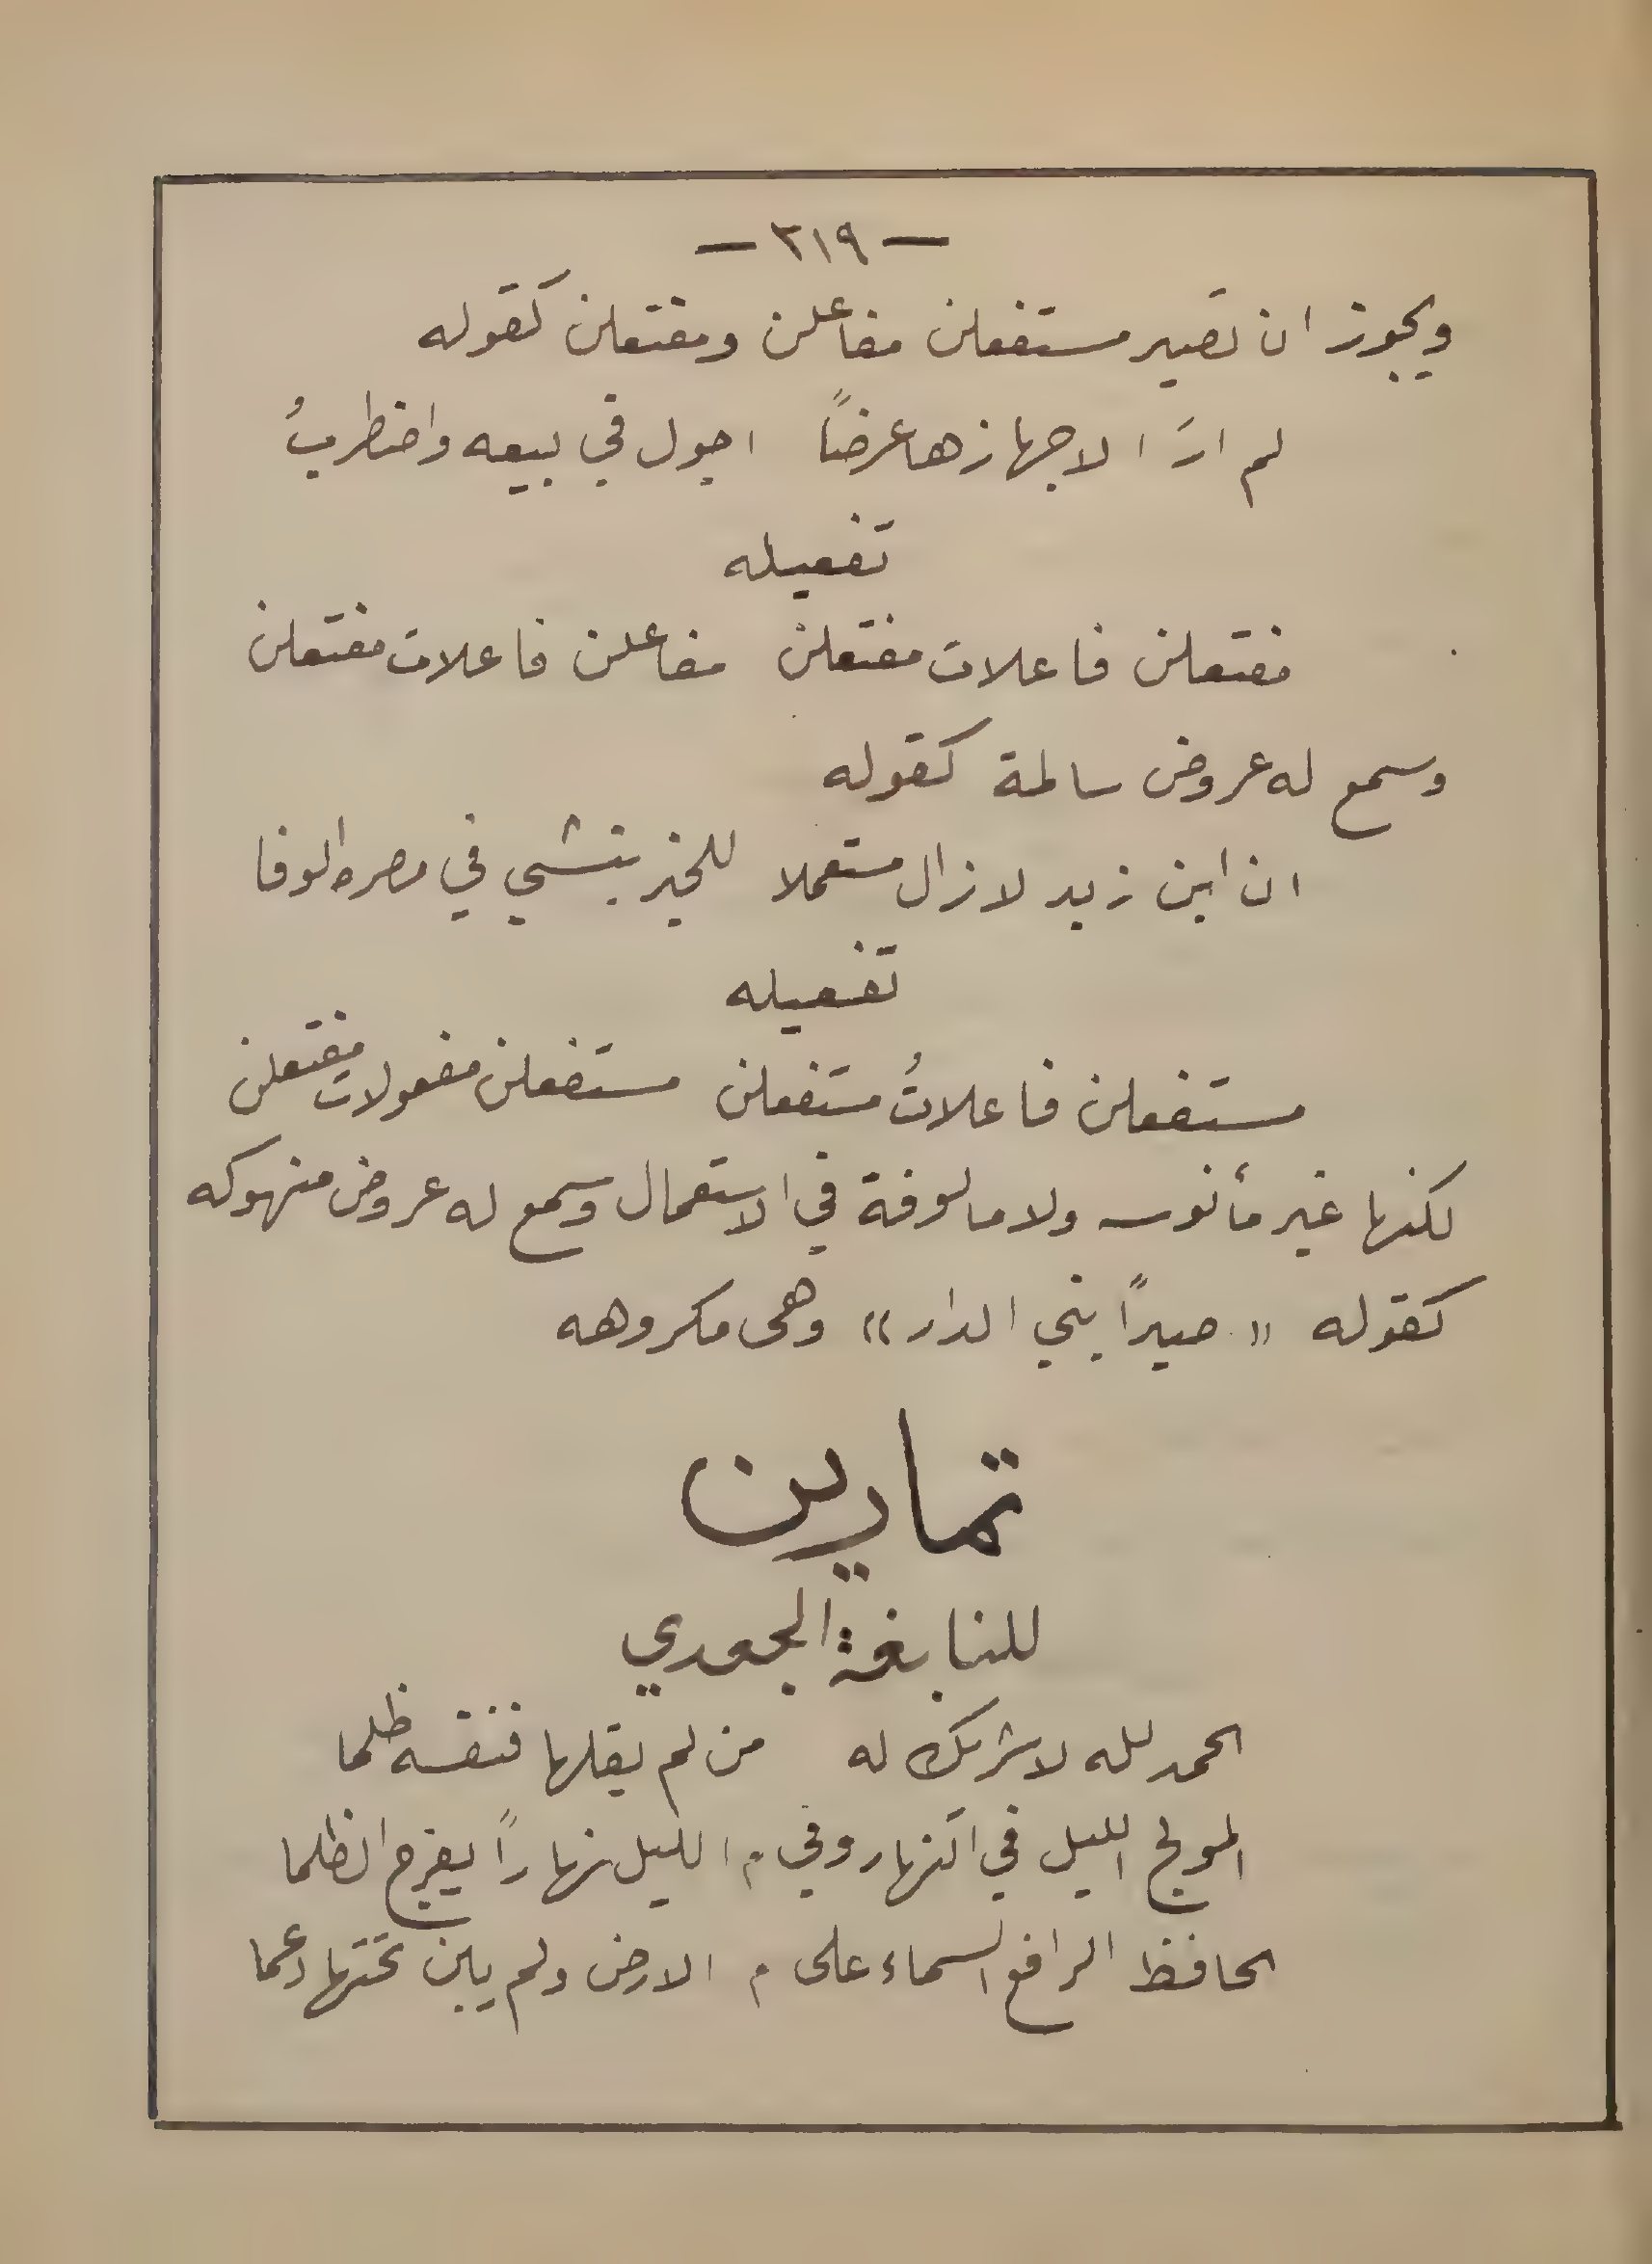 — ٣١٩ —
ويجوز ان تصير مستفعلن مفاعلن ومفتعلن كقوله
لم ارَ الا جهازها عرضاً اجول في بيعه واضطربُ
تفعيله
مفتعلن فاعلات مفتعلن مفاعلن فاعلات مفتعلن
وسمع له عروض سالمة كقوله
ان ابن زيد لا زال مستعملا للخير يفشي في مصره الوفا
تفعيله
مستفعلن فاعلاتُ مستفعلن مستفعلن مفعولات مفتعلن
لكنها غير مأنوسه ولا مالوفة في الاستعمال وسمع له عروض منهوكه
كقوله « صبراً بني الدار » وهى مكروهه
تمارين
للنابغة الجعدي
الحمد لله لا شريك له من لم يقلها فنفسه ظلما
المولج الليل في النهار وفي م الليل نهاراً يفرج الظلما
الحافظ الرافع السماء على م الارض ولم يبن تحتها دعما